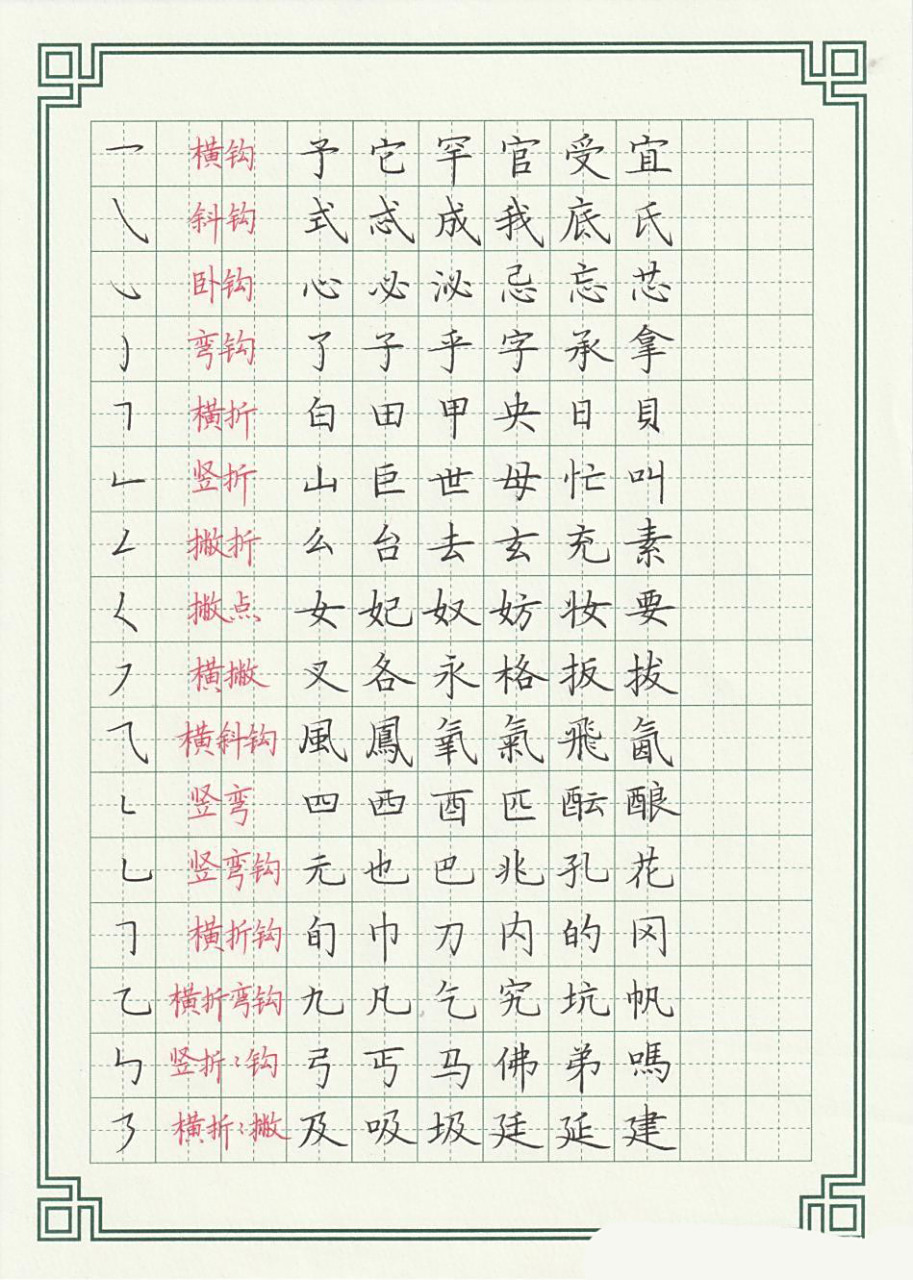 乛 横钩 予它罕官受宜
㇂ 斜钩 式忒成我底氏
㇃ 卧钩 心必泌忌忘芯
㇁ 弯钩 了子乎字承拿
𠃍 横折 白田甲央日貝
𠃊 竖折 山巨世母忙叫
𠃋 撇折 么台去玄充素
𡿨 撇点 女妃奴妨妆要
㇇ 横撇 叉各永格扳拔
⺄ 横斜钩 風鳳氧氣飛氤
㇄ 竖弯 四西酉匹酝酿
乚 竖弯钩 元也巴兆孔花
𠃌 横折钩 旬巾刀内的冈
乙 横折弯钩 九凡乞究坑帆
㇉ 竖折:钩 弓丐马佛弟嗎
㇋ 横折:撇 及吸圾廷延建